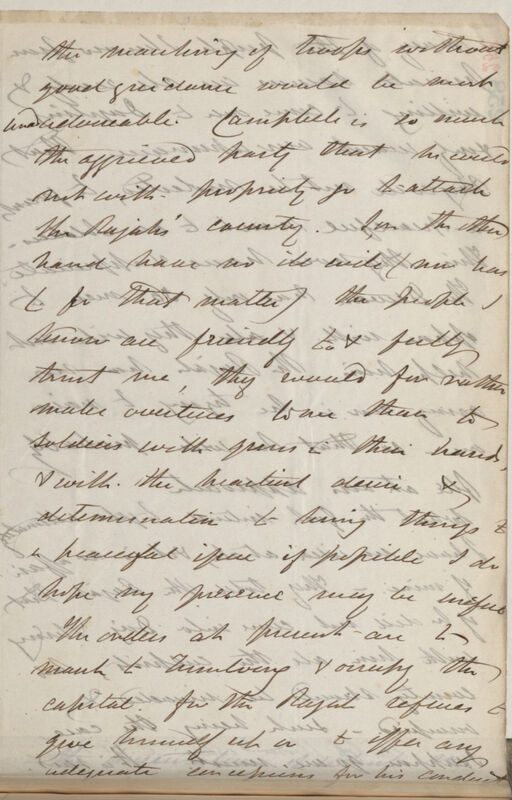 the marching of troops without
good guidance would be most
unadviseable. Campbell is so much
the aggrieved party that he could
not with propriety go to attack
the Rajah's country. I on the other
hand have no ill will (nor has
C for that matter) the people I
know are friendly to & fully
trust me, they would far rather
make overtures to me than to
soldiers with guns in their hands,
& with the heartiest desire &
determination to bring things to
a peaceful issue if possible I do
hope my presence may be useful
The orders at present are to
march to Tumlong & occupy the
capital. for the Rajah refuses to
give himself up or to offer any
adequate concessions for his conduct